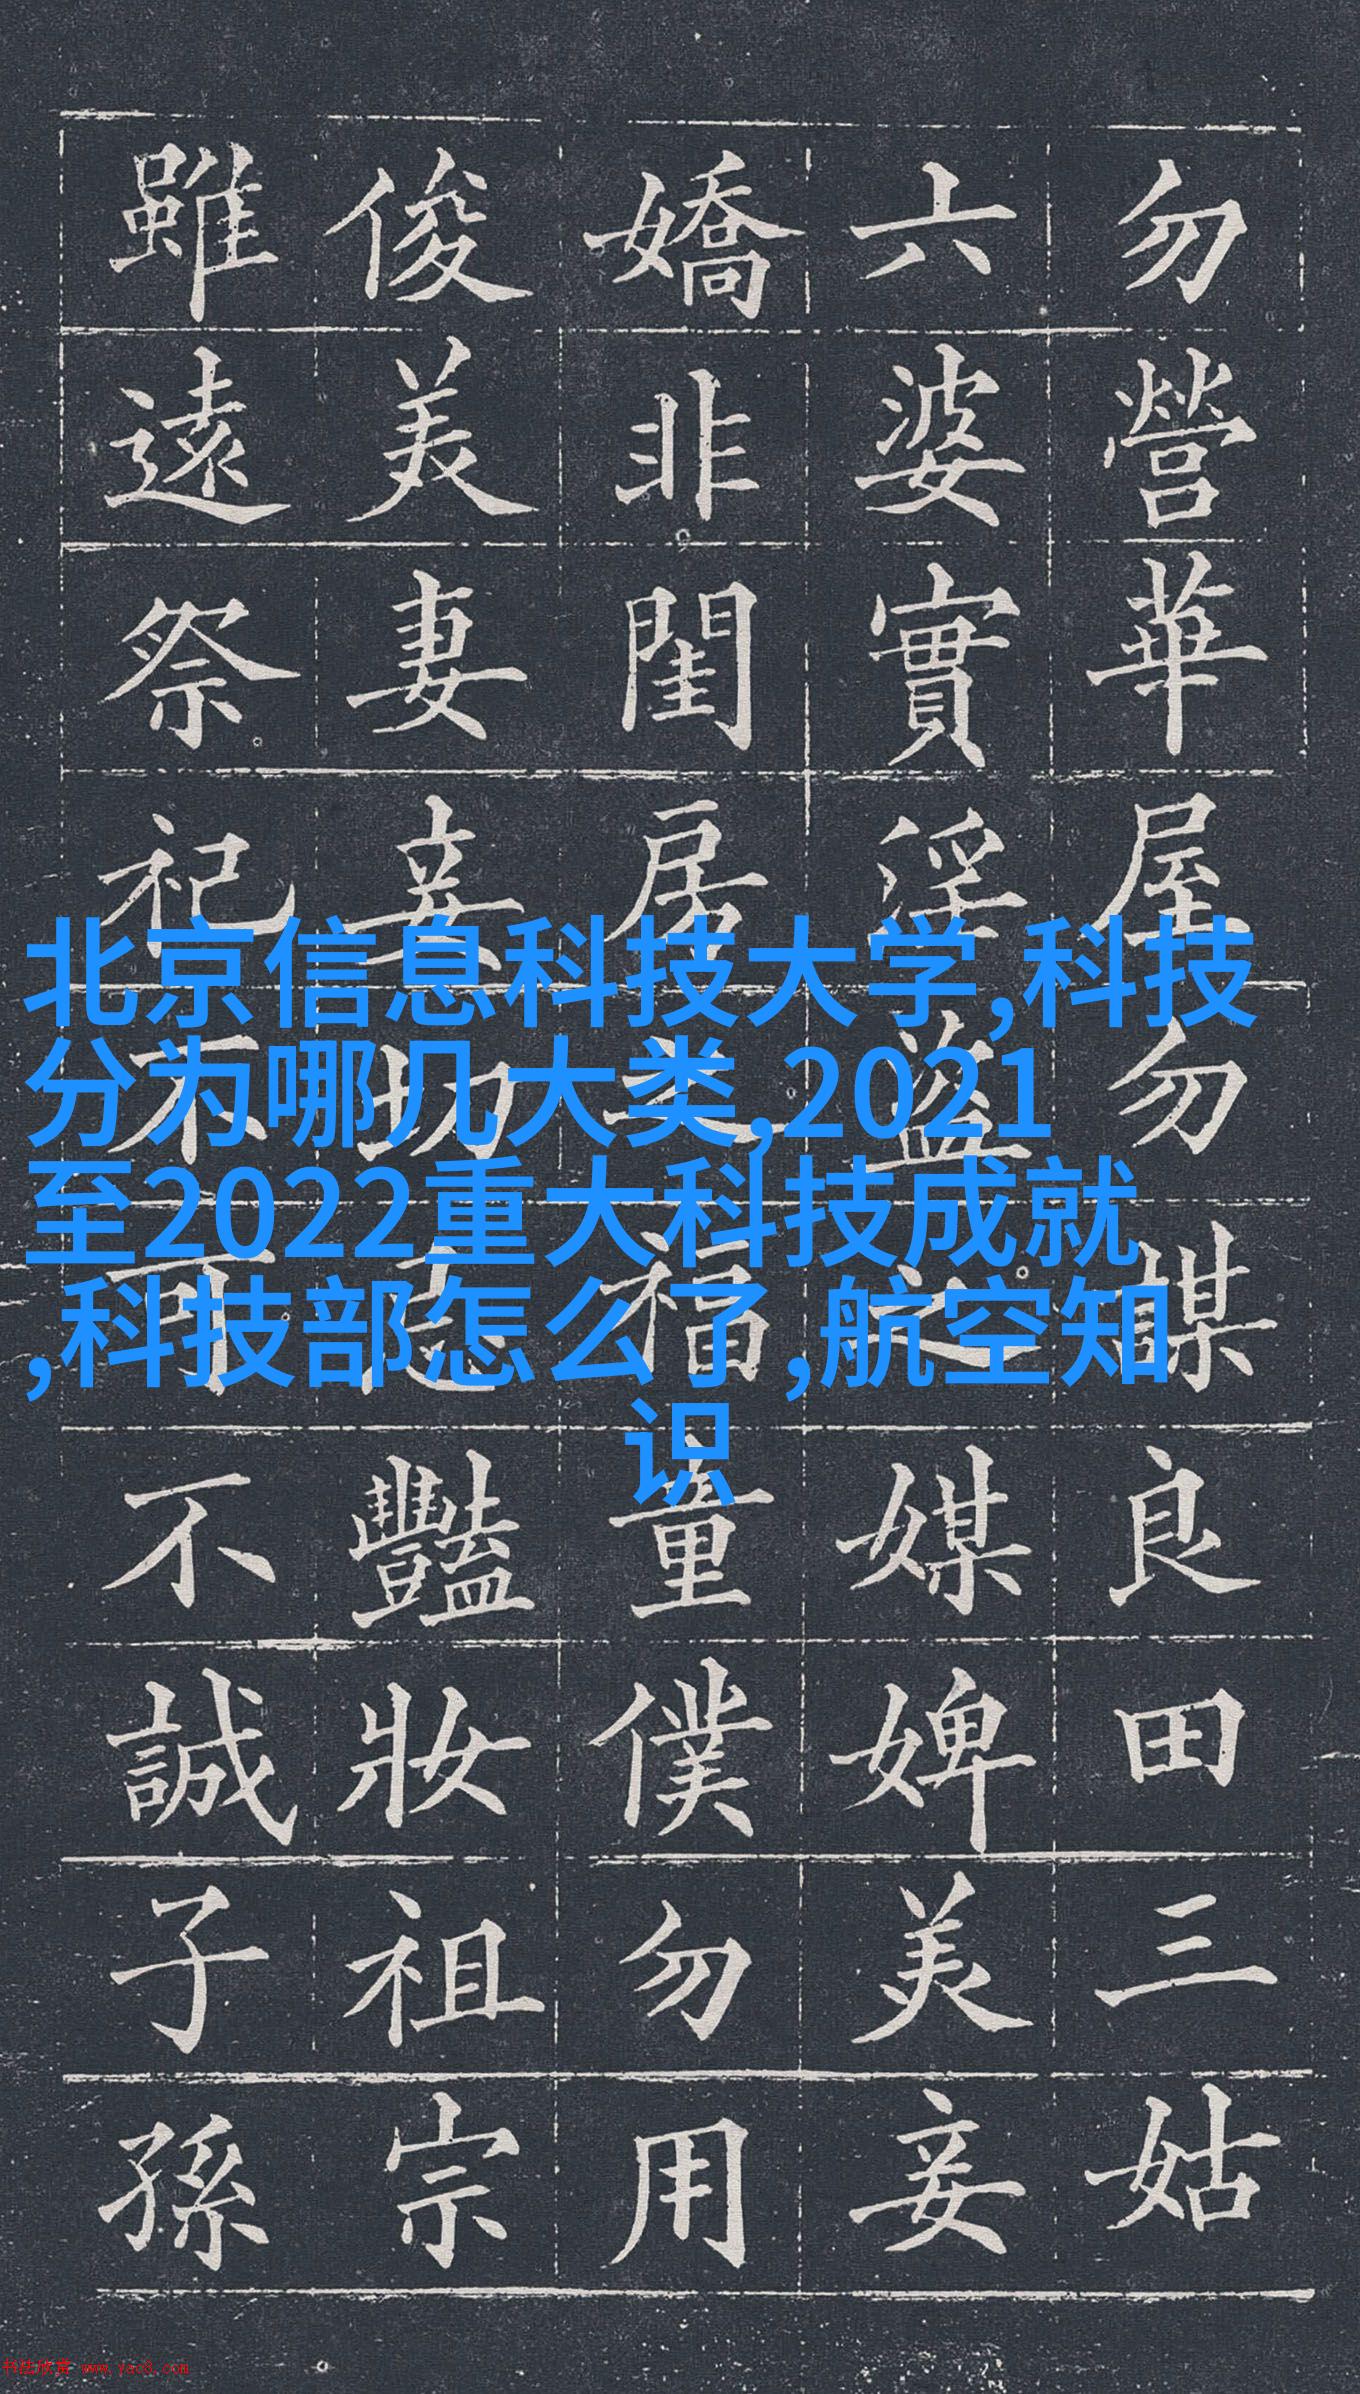 勿營華屋勿謀良田三姑
六婆實淫盜之媒婢美妾
嬌非閨房之福童僕勿用
俊美妻妾切忌豔妝祖宗
雖遠祭祀不可不誠子孫
北京信息科技大学,科技
分为哪几大类,2021
至2022重大科技成就
,科技部怎么了,航空知
识
书法欣赏 www.yac8.com